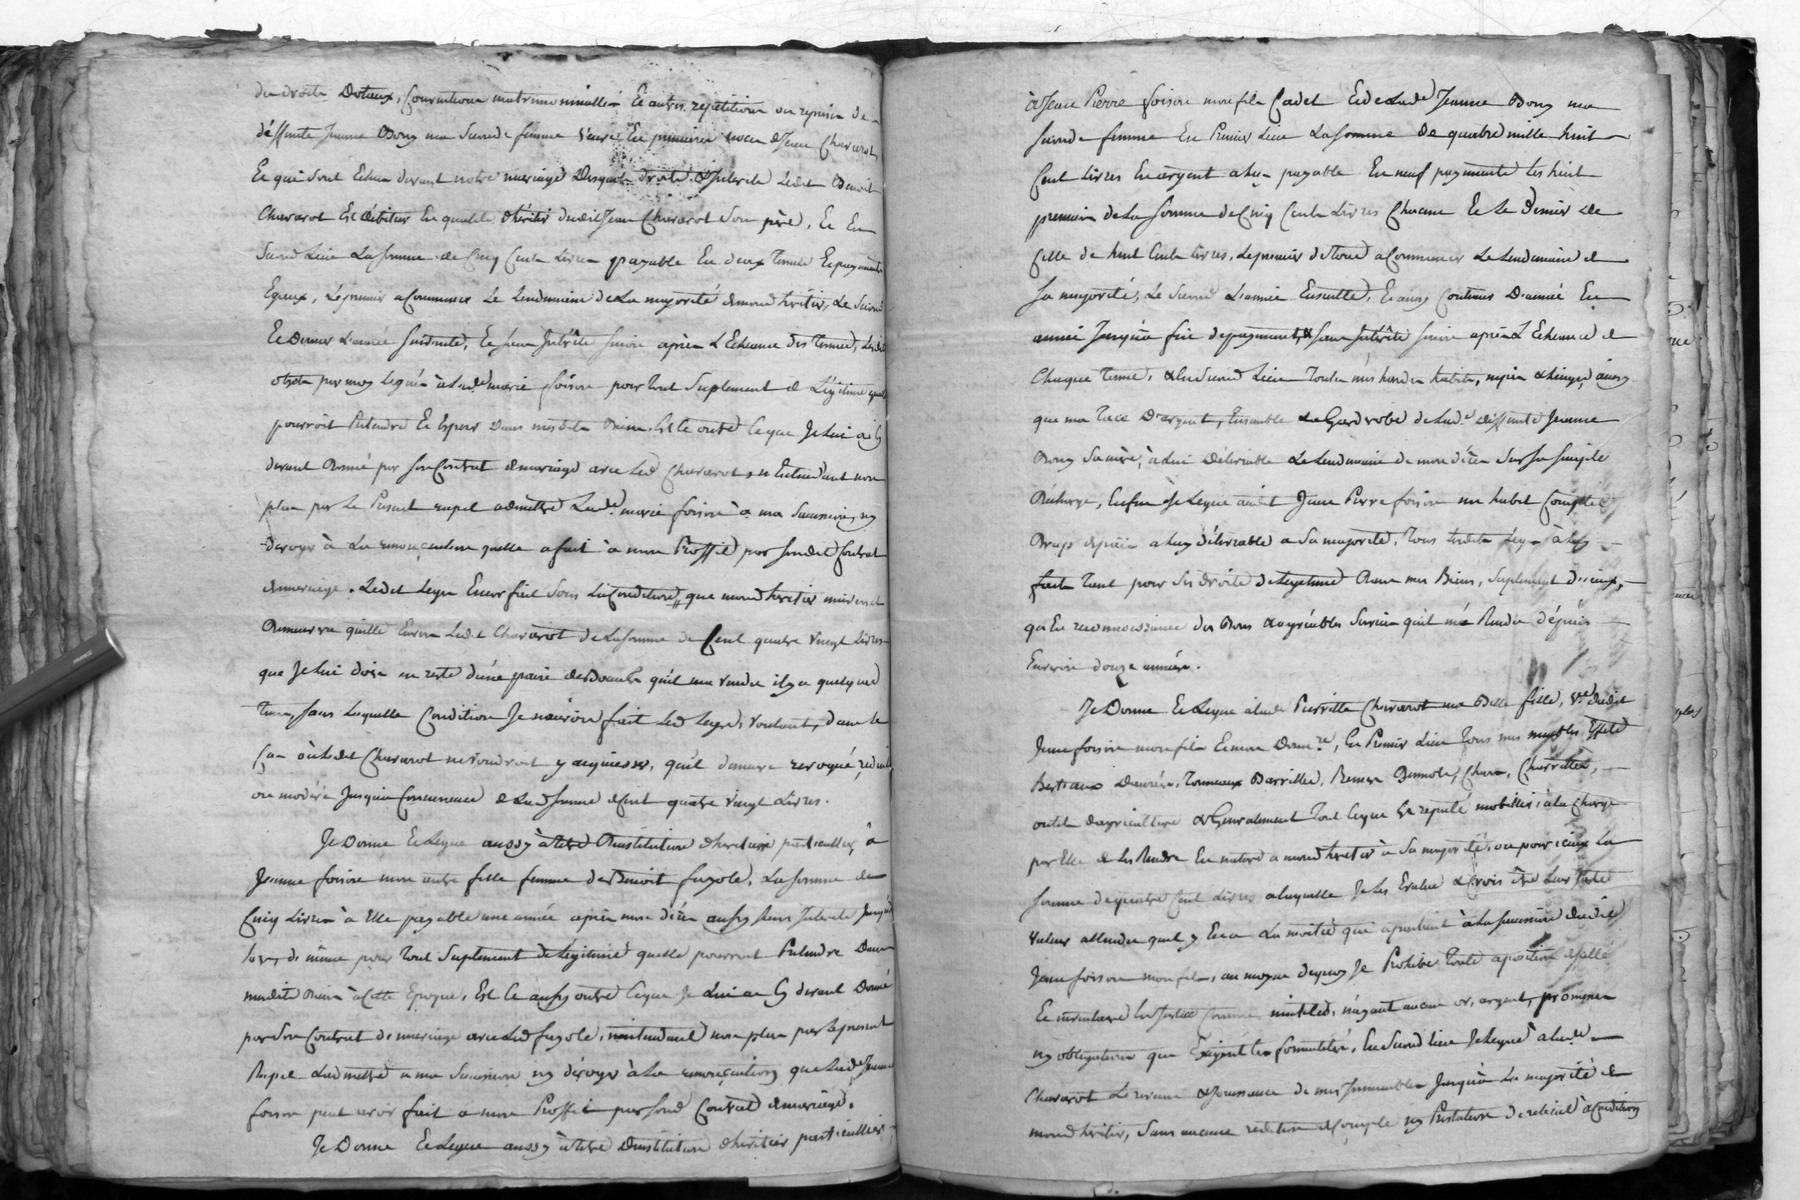 de droits Dotaux, Conventions matrimonialles Et autres repetitions ou reprises de
déffunte Jeanne Bony ma Seconde femme veuve En premieres noces de Jean Chavarot
Et qui sont Echus durant notre mariage Desquels droits & Interets Ledit Benoit
Chavarot Est débiteur En qualité d'héritier dudit Jean Chavarot Son père, Et En
Second Lieu La somme de Cinq Cents Livres payable En deux Termes Et payements
Egaux, Le premier a Commencer Le Lendemain de La majorité de mond heritier, Le Second
Et Dernier L'année suivante, Et sans Intérêts sinon après L'Echeance des Termes, Lesdits
objets par moy Legués à Lad.e marie foison pour tout Suplement de Légitime quelle
pourroit Prétendre Et Esperer Dans mesdits Biens. Et Ce outre Ce que Je Lui ai Cy
devant Donné par son Contrat de mariage avec Led Chavarot, n'Entendant non
plus par Le Present rapel admettre Lad.e marie foison à ma Succession, ny
déroger à La renonciation quelle a fait à mon Proffit par sondit Contrat
de mariage. Ledit Legs Encor fait Sous La Condition, que mond heritier universel
Demeurera quitte Envers Ledit Chavarot de La somme de Cent quatre vingt Livres
que Je Lui dois en reste d'une paire de Boeufs qu'il m'a vendu il y a quelque
Tems, sans Laquelle Condition Je n'aurois fait Led Legs, voulant, dans le
Cas où Ledit Chavarot ne voudroit y acquiesser, qu'il demeure revoqué, réduit
ou modéré Jusqu'à Concurrence de Lad somme de Cent quatre vingt Livres.
Je Donne Et Legue aussy à titre D'institution d'heritiere particulliere, à
Jeanne foison mon autre fille femme de Benoit fugole, La somme de
Cinq Livres à Elle payable une année après mon décès aussy sans Interets Jusqu'à
Lors, de même pour tout Suplement de Légitime quelle pourroit Prétendre Dans
mesdits Biens à Cette Epoque, Et Ce aussy outre Ce que Je Lui ai Cy devant Donné
par Son Contrat de mariage avec Led fugole, n'entendant non plus par Le present
Rapel L'admettre a ma Succession ny déroger à La renonciation que Lad.e Jeanne
foison peut avoir fait a mon Proffit par sond Contrat de mariage.
Je Donne Et Legue aussy à titre D'institution d'heritier particullier,
à Jean Pierre foison mon fils Cadet Et de Lad.e Jeanne Bony ma
seconde femme En Premier Lieu La somme de quatre mille huit
Cent Livres En argent a Luy payable En neuf payements Les huit
premiers de La somme de Cinq Cents Livres Chacun Et Le Dernier de
Celle de huit Cents Livres, Le premier desquels a Commencer Le Lendemain de
Sa majorité, Le Second L'année Ensuitte, Et ainsy Continuer D'année En
année Jusqu'à fin de payement, & sans Intérêts sinon après L'Echeance de
Chaque terme, & En Second Lieu Toutes mes hardes habits, nipes & Linges, ainsy
que ma tace D'argent, Ensemble La Garderobe de Lad.e déffunte Jeanne
Bony Sa mère, à Lui Délivrable Le Lendemain de mon décès Sur Sa simple
Décharge, Enfin Je Legue audit Jean Pierre foison un habit Complet
Drap de païs a Luy délivrable a Sa majorité, Tous Lesdits Legs à Luy
faits Tant pour Ses droits de Legitime Dans mes Biens, Suplement d'iceux,
qu'En reconnoissance des Bons & agréables Services qu'il m'a Rendu dépuis
Environ douze années.
Je Donne Et Legue à Lade Pierrette Chavarot ma Belle fille, V.e dudit
Jean foison mon fils Et mon Donn.re, En Premier Lieu Tous mes meubles, Effets
Bestiaux Denrées, Tonneaux Barrilles, Bennes Bennots, Chars, Charrettes,
outils d'agriculture & Generalement Tout Ce que Est reputé mobilier, à La Charge
par Elle de Les Rendre En nature a mond heritier à Sa majorité, ou pour iceux La
somme de quatre Cent Livres a Laquelle Je Les Evalue & Crois être Leur juste
valeur attendu quil y En a La moitié qui apartient à La succession dudit
Jean foison mon fils, au moyen de quoy Je Prohibe Toute aposition de sçellé
Et inventaire En Justice Comme inutiles, n'ayant aucun or, argent, promesses
ny obligations qui Exigent Ces formalités, En Second Lieu Je Legue à Lad.e
Chavarot Le revenu & Jouissance de mes Immeubles Jusqu'à La majorité de
mond heritier, sans aucune reddition de Compte ny Prestation de relicat à Condition